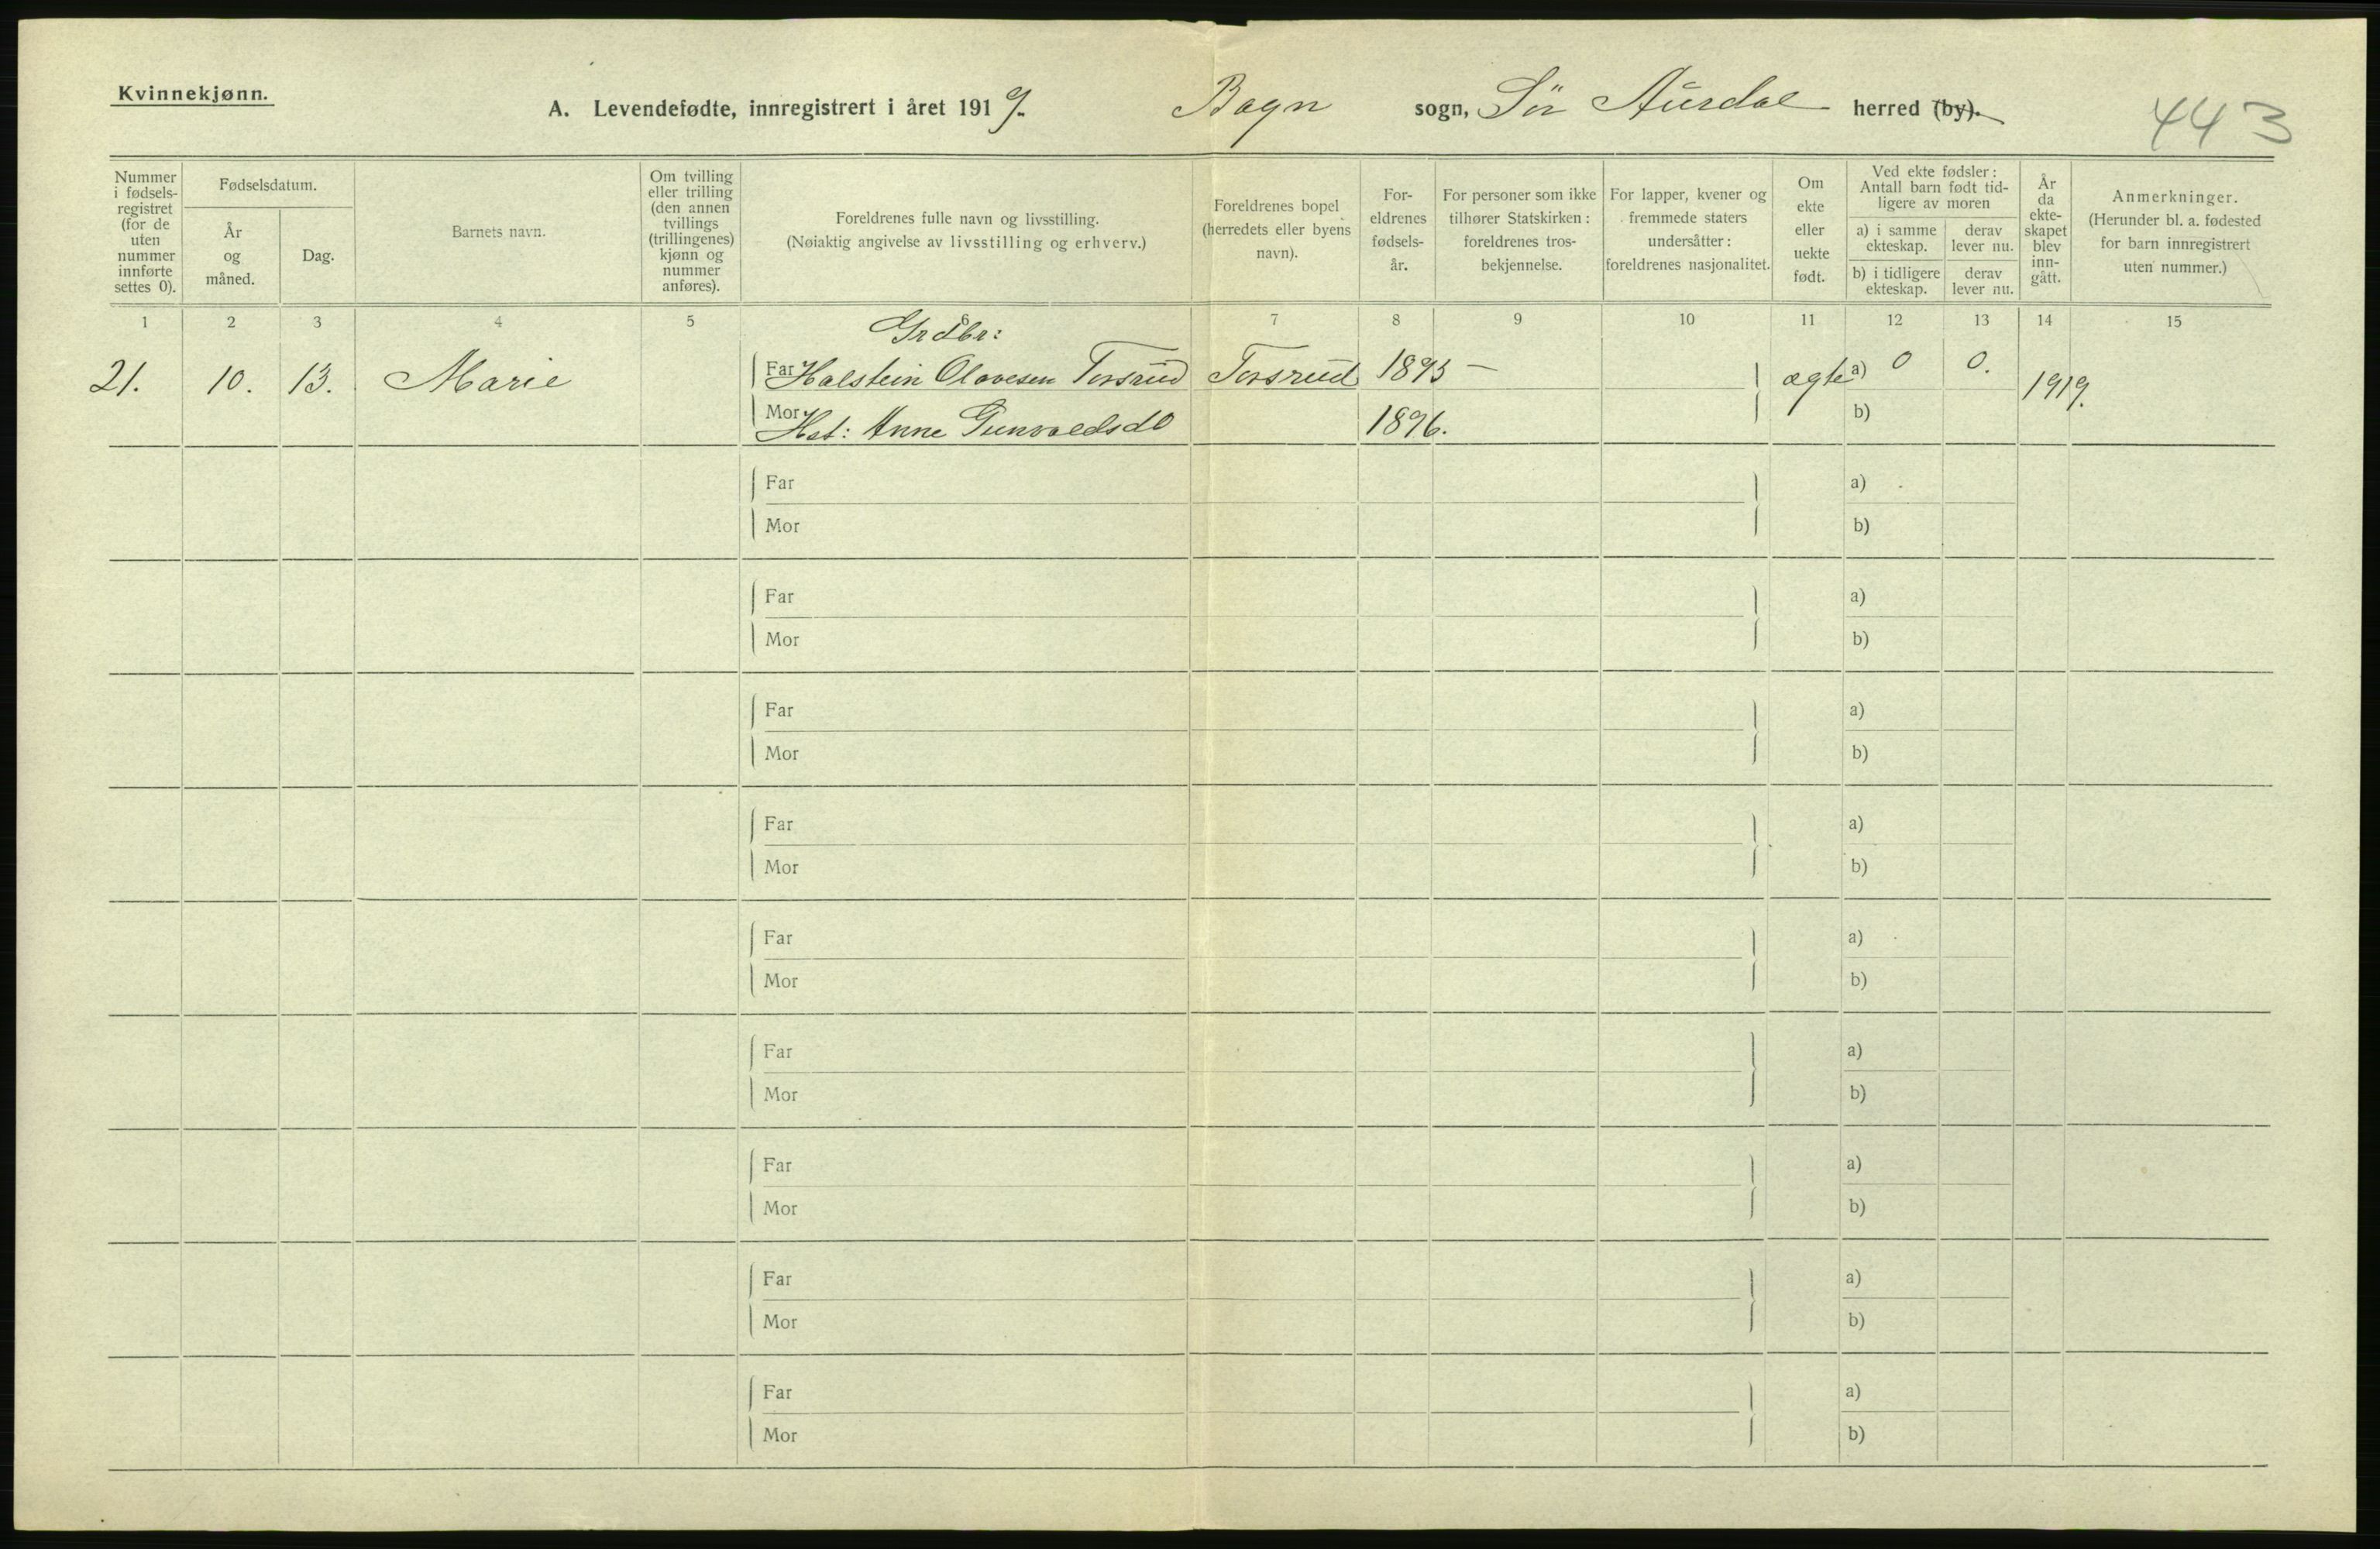 Kvinnekjønn.
A. Levendefødte, innregistrert i året 1919. Bagn sogn, Sør Aurdal herred (by).
443
Nummer i fødsels- registret (for de uten nummer innførte settes 0).
Fødselsdatum.
År og måned.
Dag.
Barnets navn.
Om tvilling eller trilling (den annen tvillings (trillingenes) kjønn og nummer anføres).
Foreldrenes fulle navn og livsstilling.
(Nøiaktig angivelse av livsstilling og erhverv.)
Foreldrenes bopel (herredets eller byens navn).
For- eldrenes fødsels- år.
For personer som ikke tilhører Statskirken: foreldrenes tros- bekjennelse.
For lapper, kvener og fremmede staters undersåtter: foreldrenes nasjonalitet.
Om ekte eller uekte født.
Ved ekte fødsler: Antall barn født tid- ligere av moren
a) i samme ekteskap.
derav lever nu.
b) i tidligere ekteskap.
derav lever nu.
År da ekte- skapet blev inn- gått.
Anmerkninger.
(Herunder bl. a. fødested for barn innregistrert uten nummer.)
1 2 3 4 5 6 7 8 9 10 11 12 13 14 15
Grdbr:
21. 10. 13. Marie Far Halstein Olavesen Torsrud Torsrud 1893 — ægte a) 0 0. 1919.
Mor Hst: Anne Gunvaldsd 1896. b)
Far a)
Mor b)
Far a)
Mor b)
Far a)
Mor b)
Far a)
Mor b)
Far a)
Mor b)
Far a)
Mor b)
Far a)
Mor b)
Far a)
Mor b)
Far a)
Mor b)